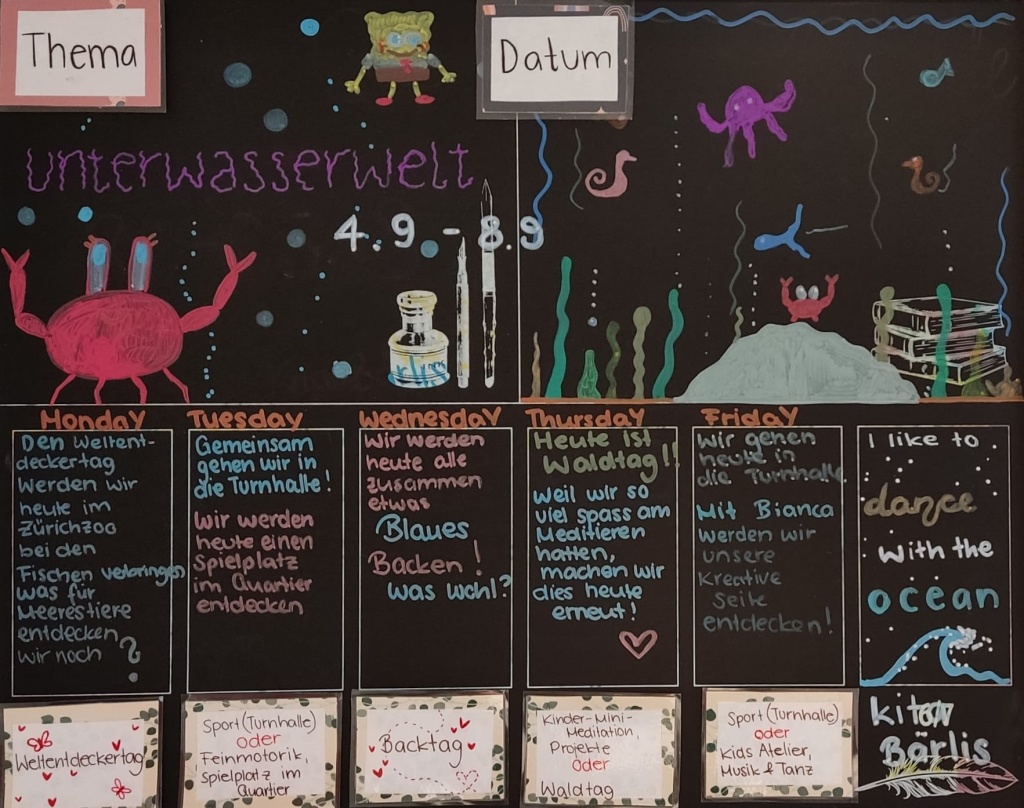 Thema
Datum
unterwasserwelt
4.9 - 8.9
Monday
Den Weltent-
deckertag
werden wir
heute im
Zürichzoo
bei den
Fischen verbringen
was für
Meerestiere
entdecken
wir noch ?
Tuesday
Gemeinsam
gehen wir in
die Turnhalle!
Wir werden
heute einen
Spielplatz
im Quartier
entdecken
Wednesday
Wir werden
heute alle
zusammen
etwas
Blaues
Backen!
was wohl?
Thursday
Heute ist
Waldtag!!
Weil wir so
viel spass am
Meditieren
hatten,
machen wir
dies heute
erneut!
Friday
Wir gehen
heute in
die Turnhalle
Mit Bianca
werden wir
unsere
Kreative
Seite
entdecken!
I like to
dance
with the
ocean
Weltentdeckertag
Sport (Turnhalle)
oder
Feinmotorik,
Spielplatz im
Quartier
Backtag
Kinder-Mini-
Meditation,
Projekte
oder
Waldtag
Sport (Turnhalle)
oder
Kids Atelier,
Musik & Tanz
Bärlis